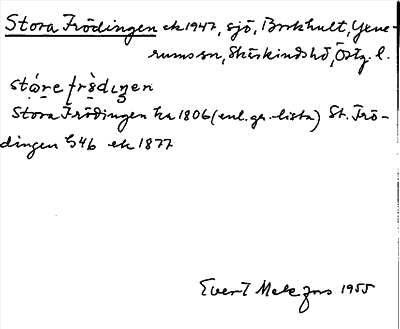 Stora Frödingen ek 1947, sjö, Borkhult, Yxne-
rums sn, Skärkinds hd, Östg. l.
stó̱re frö̀dıŋen
Stora Frödingen ha 1806 (enl. gr.-lista) St. Frö-
dingen h46 ek 1877
Evert Melefors 1955